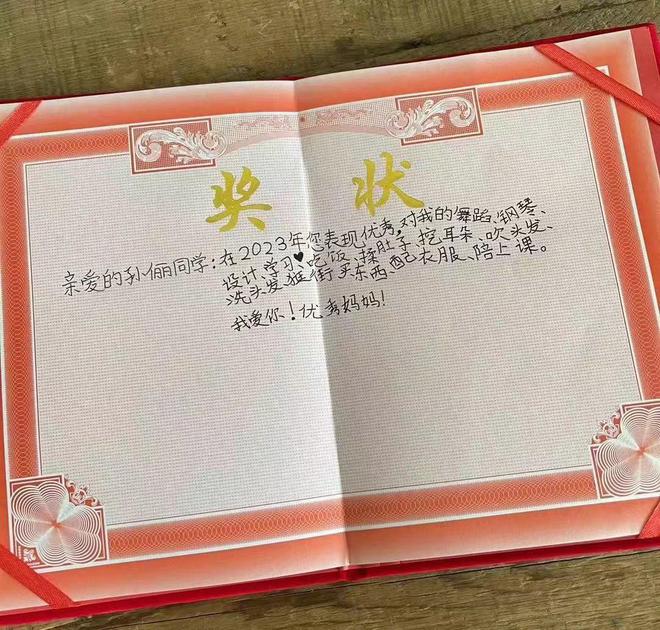 奖状
亲爱的孙俪同学：在2023年您表现优秀，对我的舞蹈、钢琴、
设计、学习、吃饭、揉肚子、挖耳朵、吹头发、
洗头发、逛街买东西、配衣服、陪上课。
我爱你！优秀妈妈！